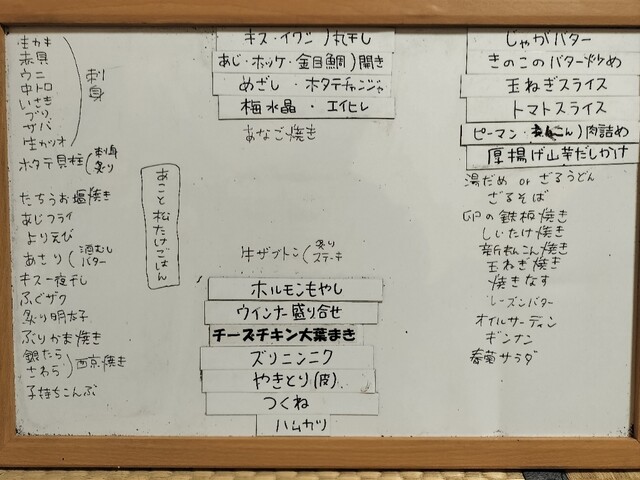 生かき
赤貝
ウニ
中トロ
いさき
ブリ
サバ
生カツオ
刺身
ホタテ貝柱(刺身 炙り
たちうお塩焼き
あじフライ
よりえび
あさり(酒むし バター
キス一夜干し
ふぐザク
炙り明太子
ぶりかま焼き
銀だら
さわら)西京焼き
子持ちこんぶ
あこと松たけごはん
キス・イワシ)丸干し
あじ・ホッケ・金目鯛)開き
めざし・ホタテチャンジャ
梅水晶・エイヒレ
あなご焼き
牛ザブトン(炙り ステーキ
ホルモンもやし
ウインナー盛り合せ
チーズチキン大葉まき
ズリニンニク
やきとり(皮)
つくね
ハムカツ
じゃがバター
きのこのバター炒め
玉ねぎスライス
トマトスライス
ピーマン・れんこん)肉詰め
厚揚げ山芋だしかけ
湯だめ or ざるうどん
ざるそば
卵の鉄板焼き
しいたけ焼き
新れんこん焼き
玉ねぎ焼き
焼きなす
レーズンバター
オイルサーディン
ギンナン
春菊サラダ